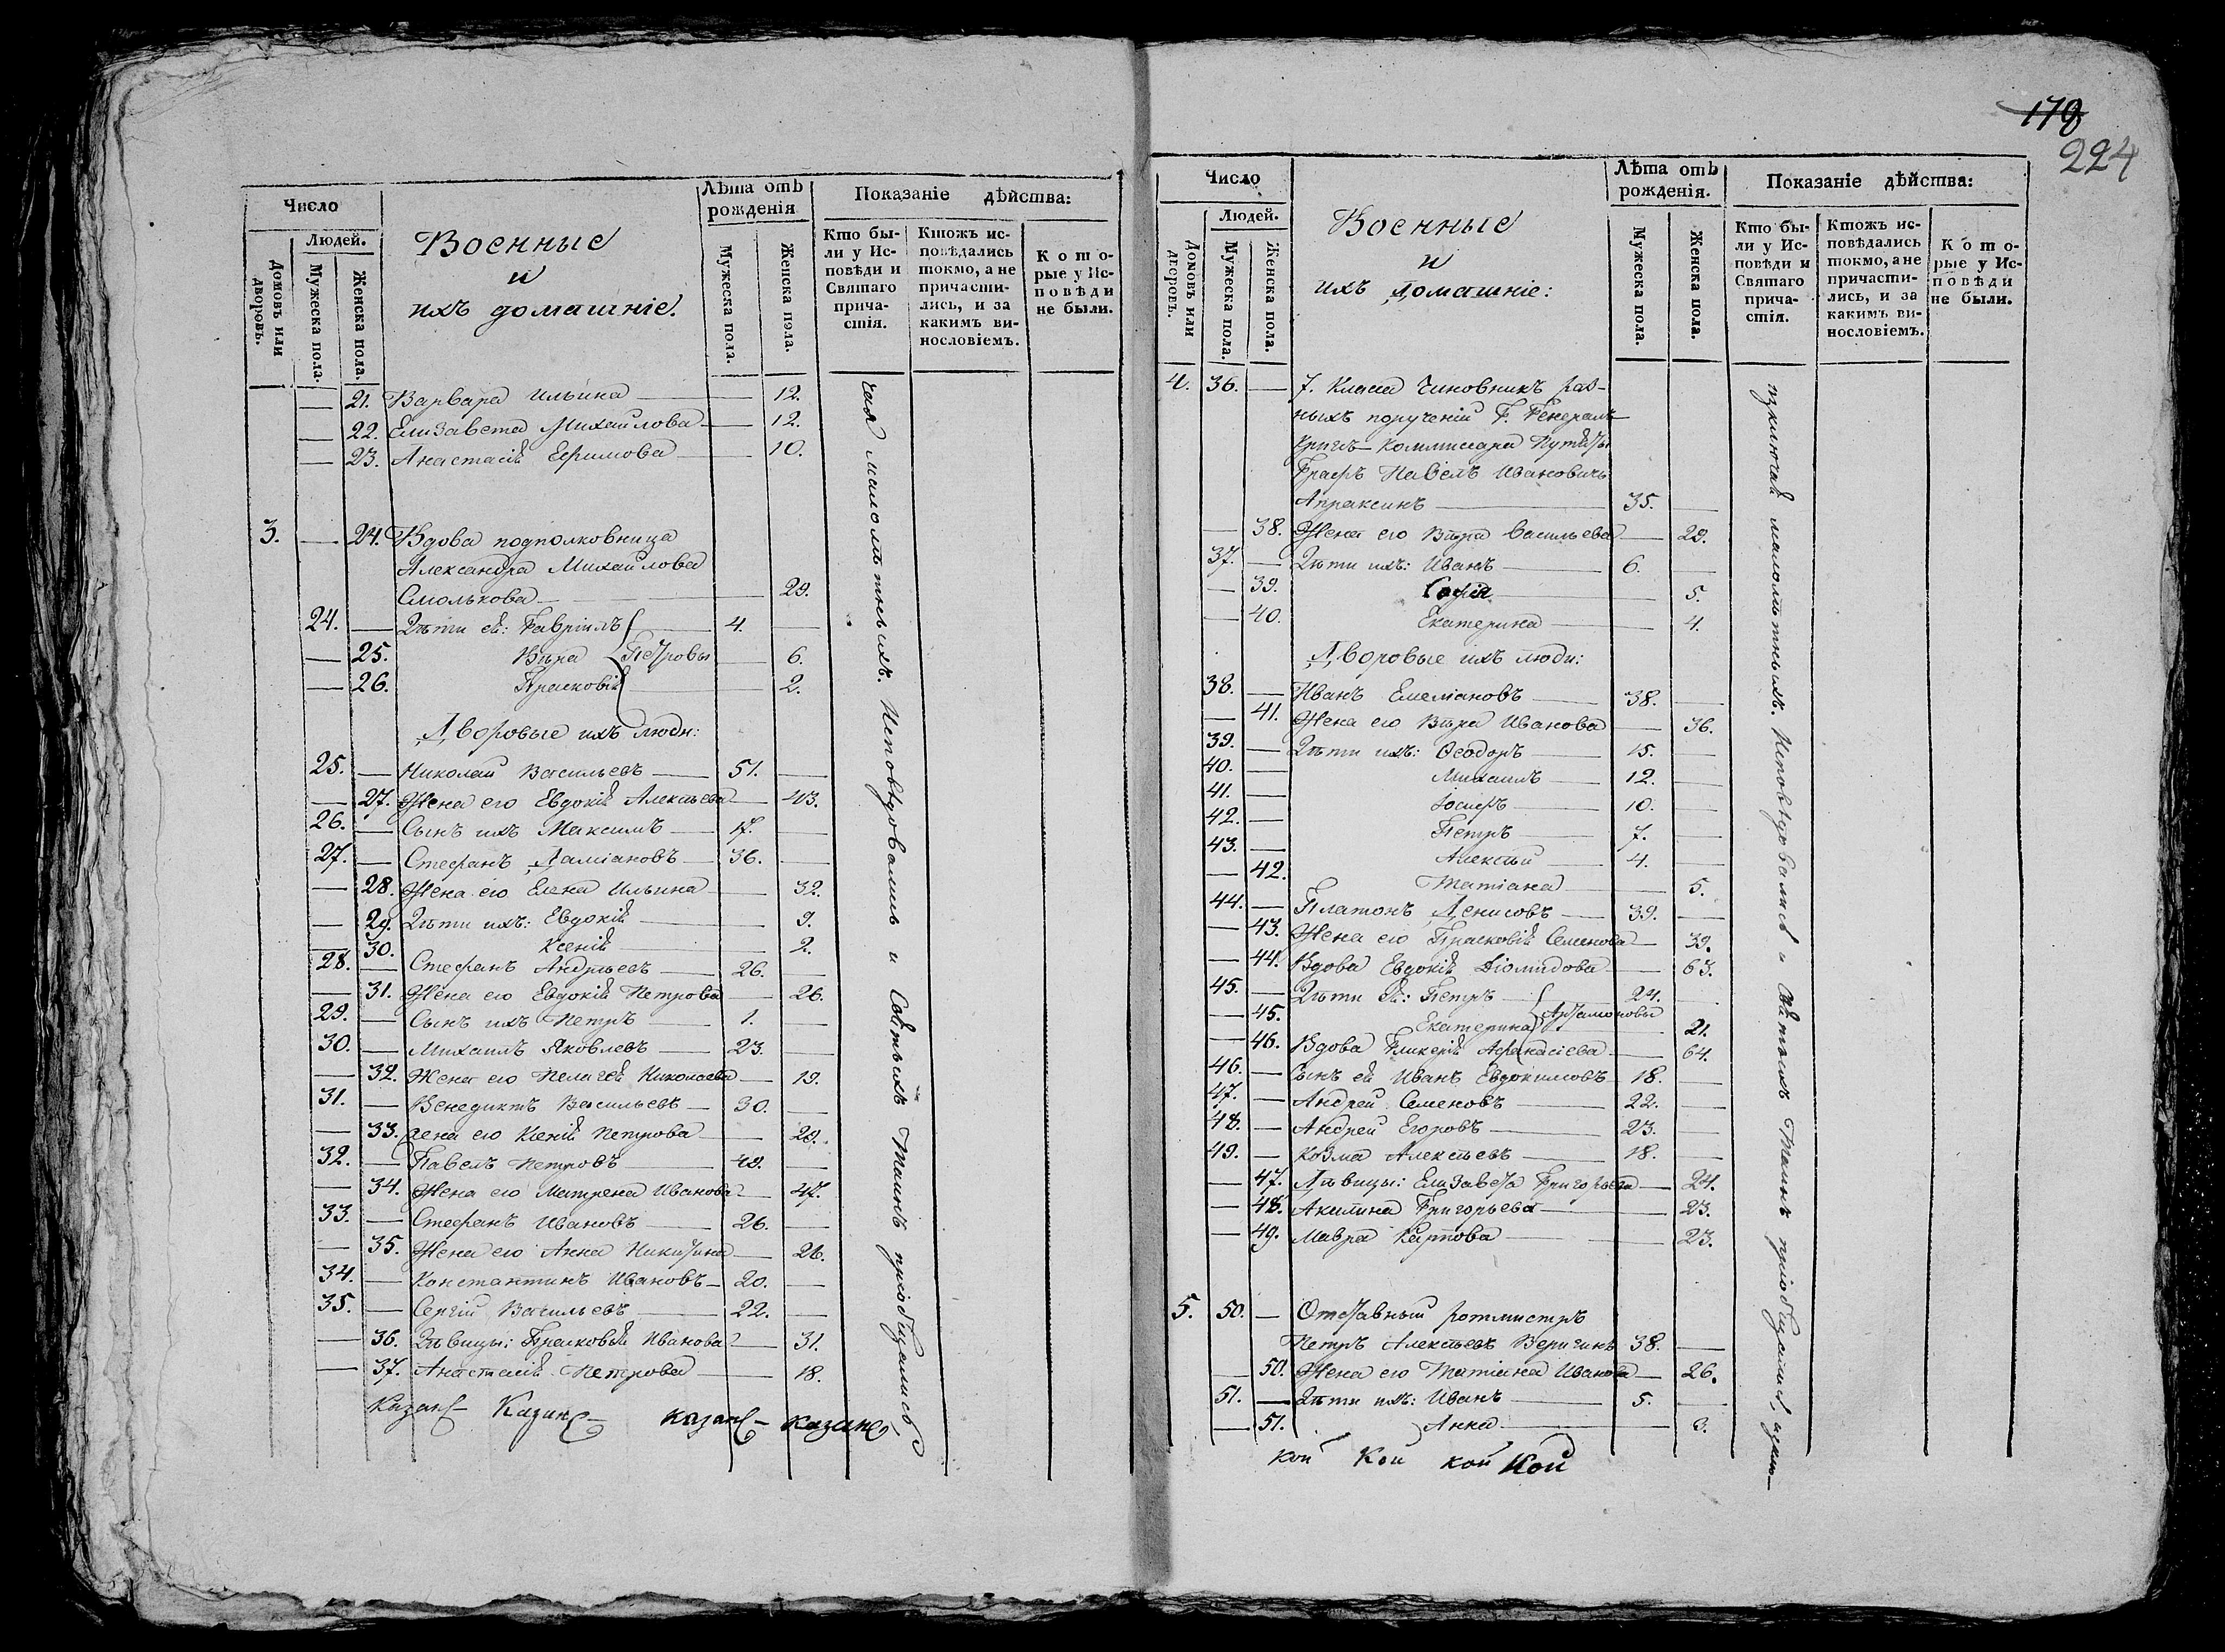 Число
Людей.
Домовъ или дворовъ.
Мужеска пола.
Женска пола.
Военные
и
ихъ домашніе.
Лѣта отъ рожденія
Мужеска пола.
Женска пола.
Показаніе дѣйства:
Кто бы-
ли у Ис-
повѣди и
Святаго
прича-
стія.
Ктожъ ис-
повѣдались
токмо, а не
причасти-
лись, и за
какимъ ви-
нословіемъ.
Кото-
рые у Ис-
повѣди
не были.
— 21. Варвара Ильина — 12.
— 22. Елизавета Михайлова — 12.
— 23. Анастасія Ефимова — 10.
3. — 24. Вдова подполковница
Александра Михайлова
Смолькова — 29.
24. — Дѣти ея: Гавріилъ — 4. —
— 25. Вѣра Петровы — 6.
— 26. Прасковія — 2.
Дворовые ихъ люди:
25. — Николай Васильевъ — 51. —
— 27. Жена его Евдокія Алексѣева — 43.
26. — Сынъ ихъ Максимъ — 17. —
27. — Стефанъ Даміановъ — 36. —
— 28. Жена его Елена Ильина — 32.
— 29. Дѣти ихъ: Евдокія — 9.
— 30. Ксенія — 2.
28. — Стефанъ Андреевъ — 26. —
— 31. Жена его Евдокія Петрова — 26.
29. — Сынъ ихъ Петръ — 1. —
30. — Михаилъ Яковлевъ — 23. —
— 32. Жена его Пелагея Николаева — 19.
31. — Венедиктъ Васильевъ — 30. —
— 33. Жена его Ксенія Петрова — 29.
32. — Павелъ Петровъ — 49. —
— 34. Жена его Матрена Иванова — 47.
33. — Стефанъ Ивановъ — 26. —
— 35. Жена его Анна Никитина — 26.
34. — Константинъ Ивановъ — 20. —
35. — Сергій Васильевъ — 22. —
— 36. Дѣвицы: Прасковья Иванова — 31.
— 37. Анастасія Петрова — 18.
чая малолѣтныхъ. Исповѣдовались и Святыхъ Таинъ пріобщались,
Казанс- Казанс- казанс- казанс
178
224
Число
Людей.
Домовъ или дворовъ.
Мужеска пола.
Женска пола.
Военные
и
ихъ домашніе:
Лѣта отъ рожденія.
Мужеска пола.
Женска пола.
Показаніе дѣйства:
Кто бы-
ли у Ис-
повѣди и
Святаго
прича-
стія.
Ктожъ ис-
повѣдались
токмо, а не
причасти-
лись, и за
какимъ ви-
нословіемъ.
Кото-
рые у Ис-
повѣди
не были.
4. 36. — 7. класса Чиновникъ раз-
ныхъ порученій Г. Генералъ
Кригсъ-Коммисара
Графъ Павелъ Ивановичь
Апраксинъ — 35. —
— 38. Жена его Вѣра Васильева — 22.
37. — Дѣти ихъ: Иванъ — 6. —
— 39. Софія — 5.
— 40. Екатерина — 4.
Дворовые ихъ люди:
38. — Иванъ Емеліановъ — 38. —
— 41. Жена его Вѣра Иванова — 36.
39. — Дѣти ихъ: Ѳеодоръ — 15. —
40. — Михаилъ — 12. —
41. — Іосифъ — 10. —
42. — Петръ — 7. —
43. — Алексѣй — 4. —
— 42. Татіана — 5.
44. — Платонъ Денисовъ — 39. —
— 43. Жена его Прасковія Семенова — 39.
— 44. Вдова Евдокія Діомидова — 63.
45. — Дѣти ея: Петръ — 24. —
— 45. Екатерина Артамоновы — 21.
— 46. Вдова Гликерія Афанасіева — 64.
46. — Сынъ ея Иванъ Евдокимовъ — 18. —
47. — Андрей Семеновъ — 22. —
48. — Андрей Егоровъ — 23. —
49. — Козма Алексѣевъ — 18. —
— 47. Дѣвицы: Елизавета Григорьева — 24.
— 48. Акилина Григорьева — 23.
— 49. Мавра Карпова — 23.
5. 50. — Отставный ротмистръ
Петръ Алексѣевъ Веригинъ 38. —
— 50. Жена его Татіана Иванова — 26.
51. — Дѣти ихъ: Иванъ — 5. —
— 51. Анна — 3.
изключая малолѣтныхъ. Исповѣдовались и Святыхъ Таинъ пріобщались, изклю-
кой Кой кой Кой